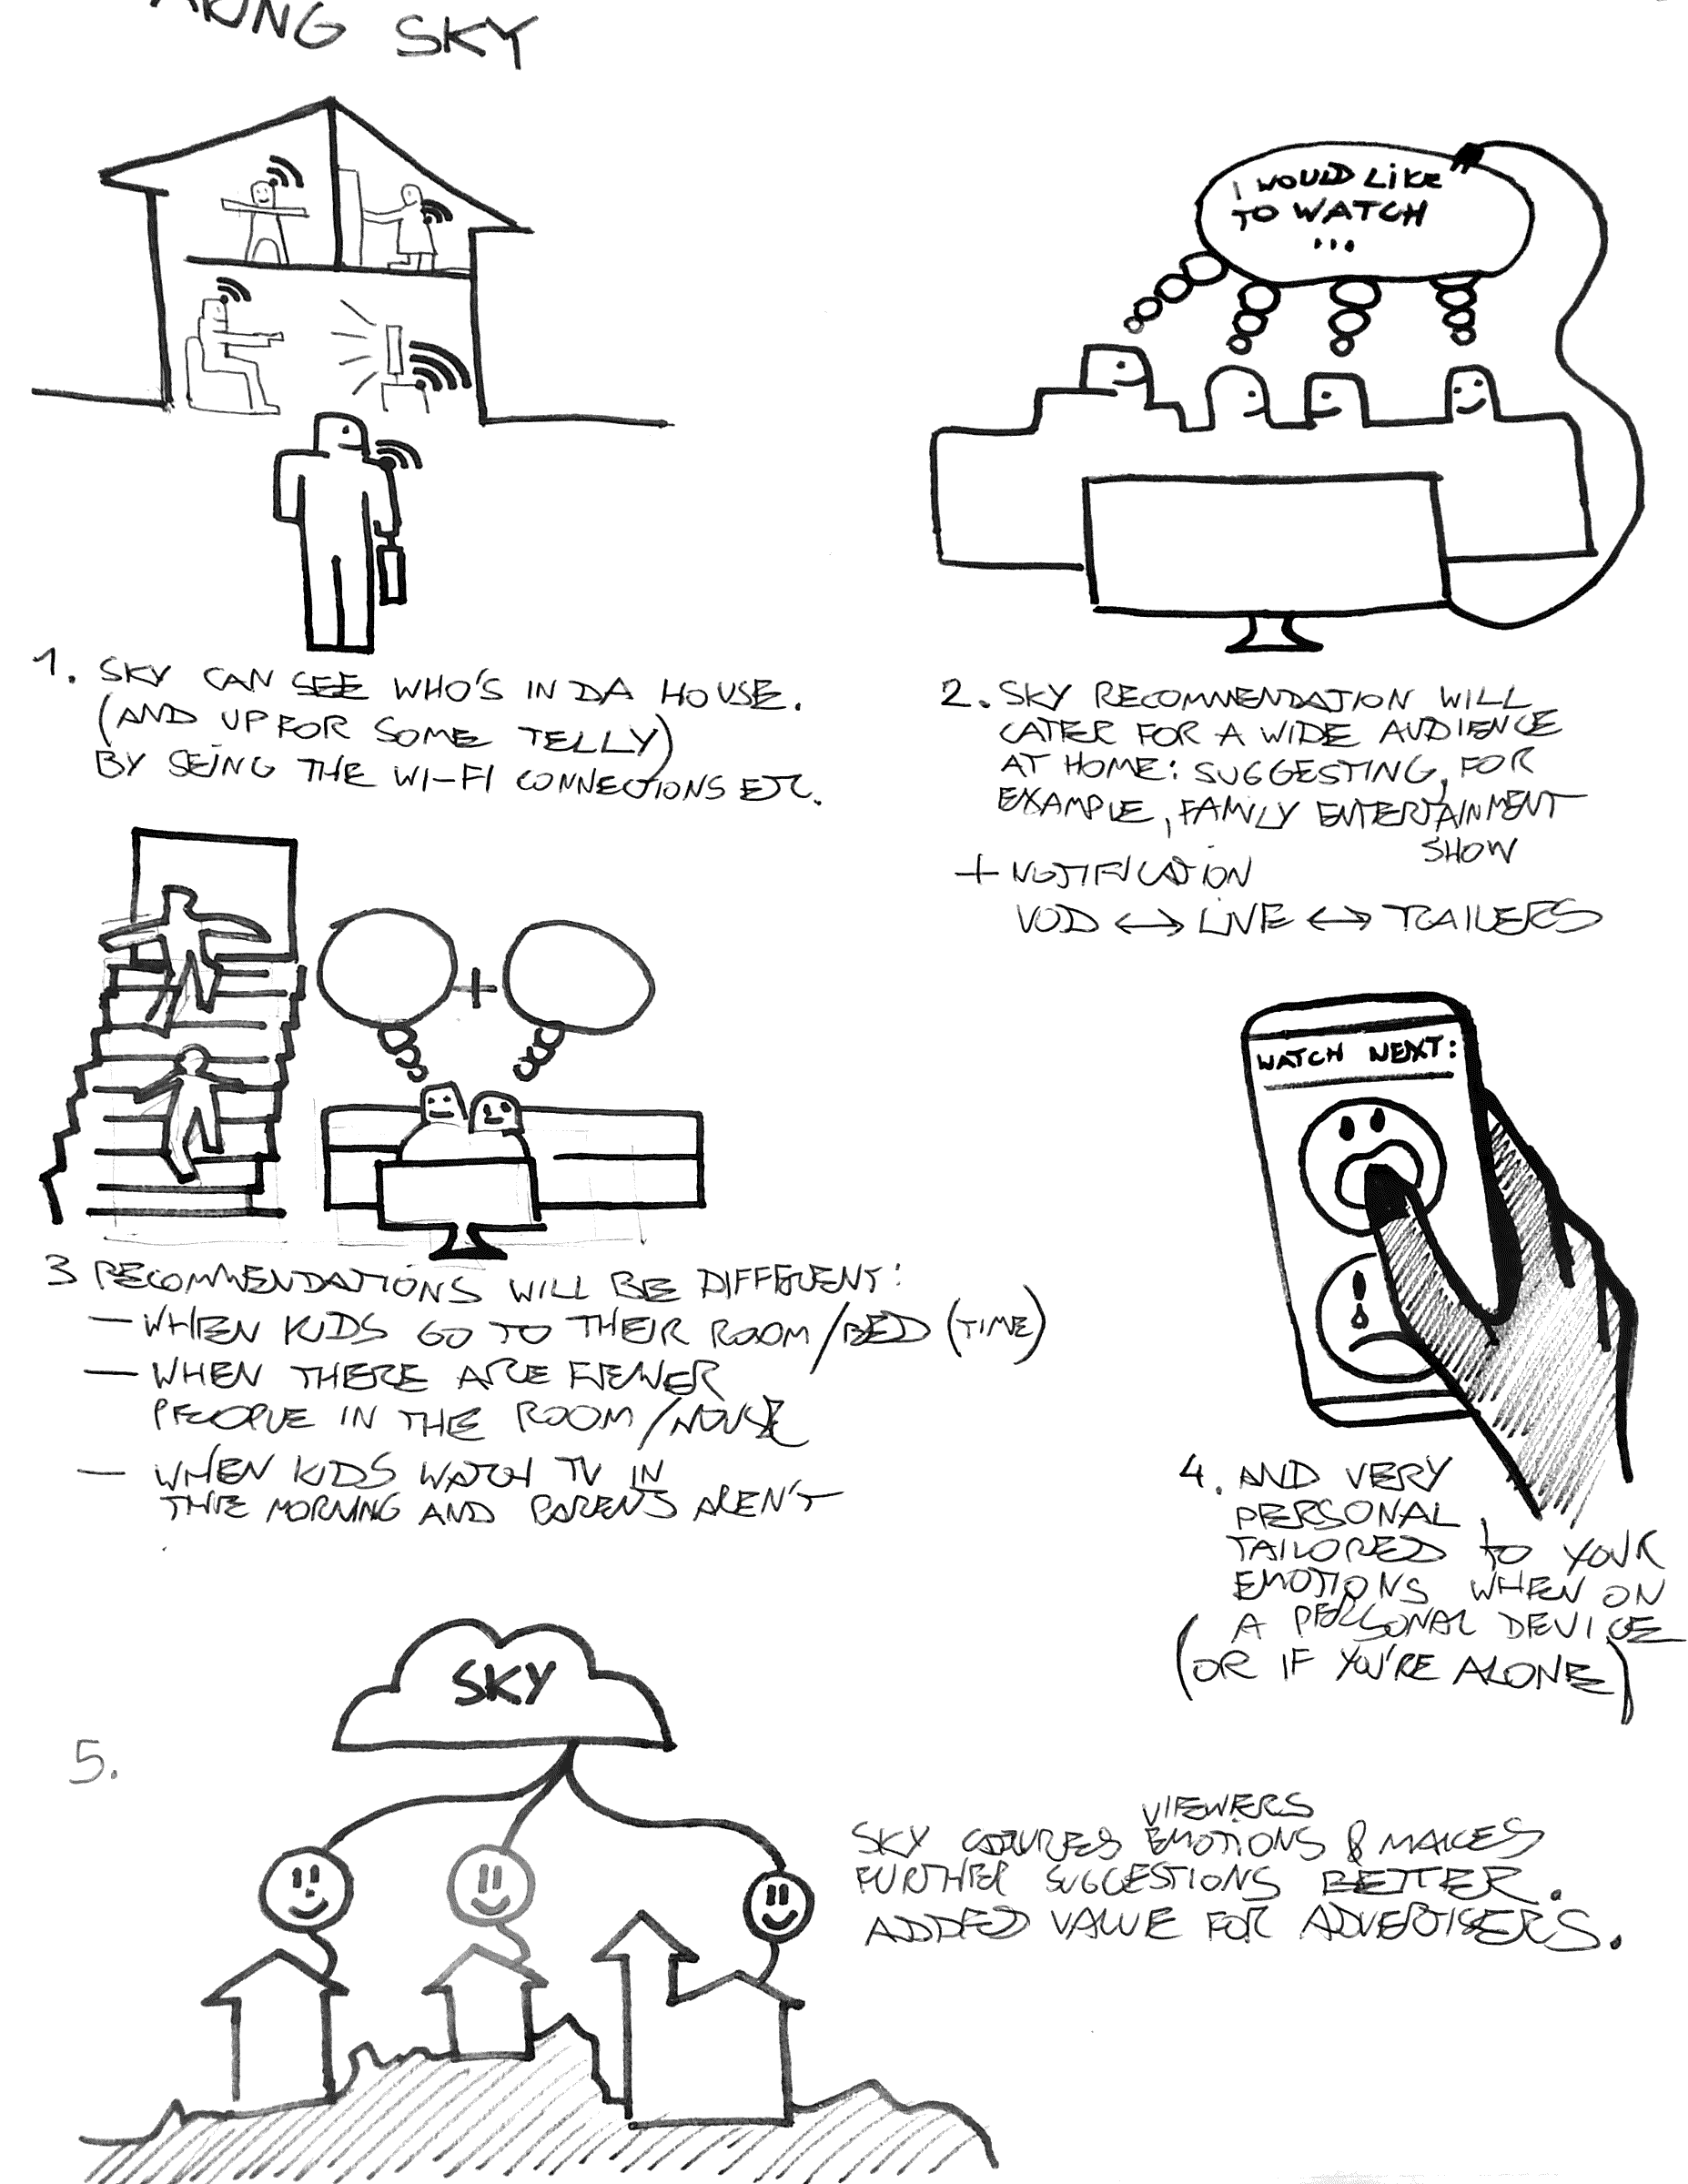 SKY
I WOULD LIKE
TO WATCH
...
1. SKY CAN SEE WHO'S IN DA HOUSE.
(AND UP FOR SOME TELLY)
BY SEING THE WI-FI CONNECTIONS ETC.
2. SKY RECOMMENDATION WILL
CATER FOR A WIDE AUDIENCE
AT HOME: SUGGESTING, FOR
EXAMPLE, FAMILY ENTERTAINMENT
SHOW
+ NOTIFICATION
VOD ↔ LIVE ↔ TRAILERS
+
3 RECOMMENDATIONS WILL BE DIFFERENT:
— WHEN KIDS GO TO THEIR ROOM/BED (TIME)
— WHEN THERE ARE FEWER
PEOPLE IN THE ROOM/HOUSE
— WHEN KIDS WATCH TV IN
THE MORNING AND PARENS AREN'T
WATCH NEXT:
4. AND VERY
PERSONAL
TAILORED to YOUR
EMOTIONS WHEN ON
A PERSONAL DEVICE
(OR IF YOU'RE ALONE)
5.
SKY
VIEWERS
SKY EMOTIONS & MAKES
FURTHER SUGGESTIONS BETTER.
ADDED VALUE FOR ADVERTISERS.